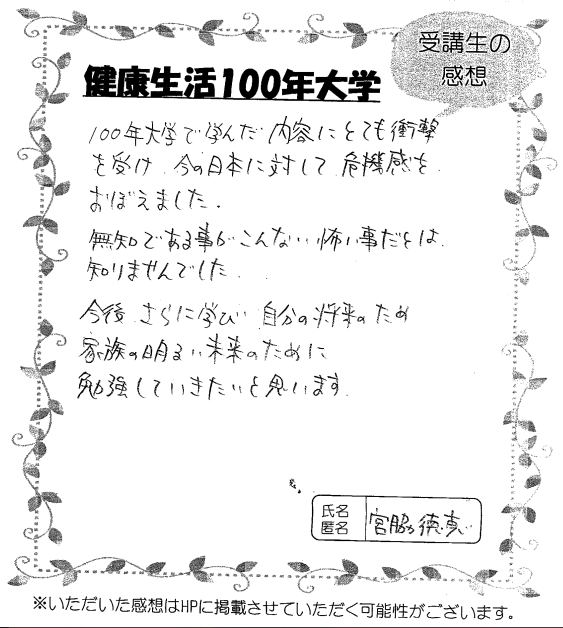 受講生の
感想
健康生活100年大学
100年大学で学んだ内容にとても衝撃
を受け 今の日本に対して危機感を
おぼえました。
無知である事がこんない怖い事だとは
知りませんでした。
今後 さらに学び 自分の将来のため
家族の明るい未来のために
勉強していきたいと思います
氏名
匿名
宮脇 徳恵
※いただいた感想はHPに掲載させていただく可能性がございます。